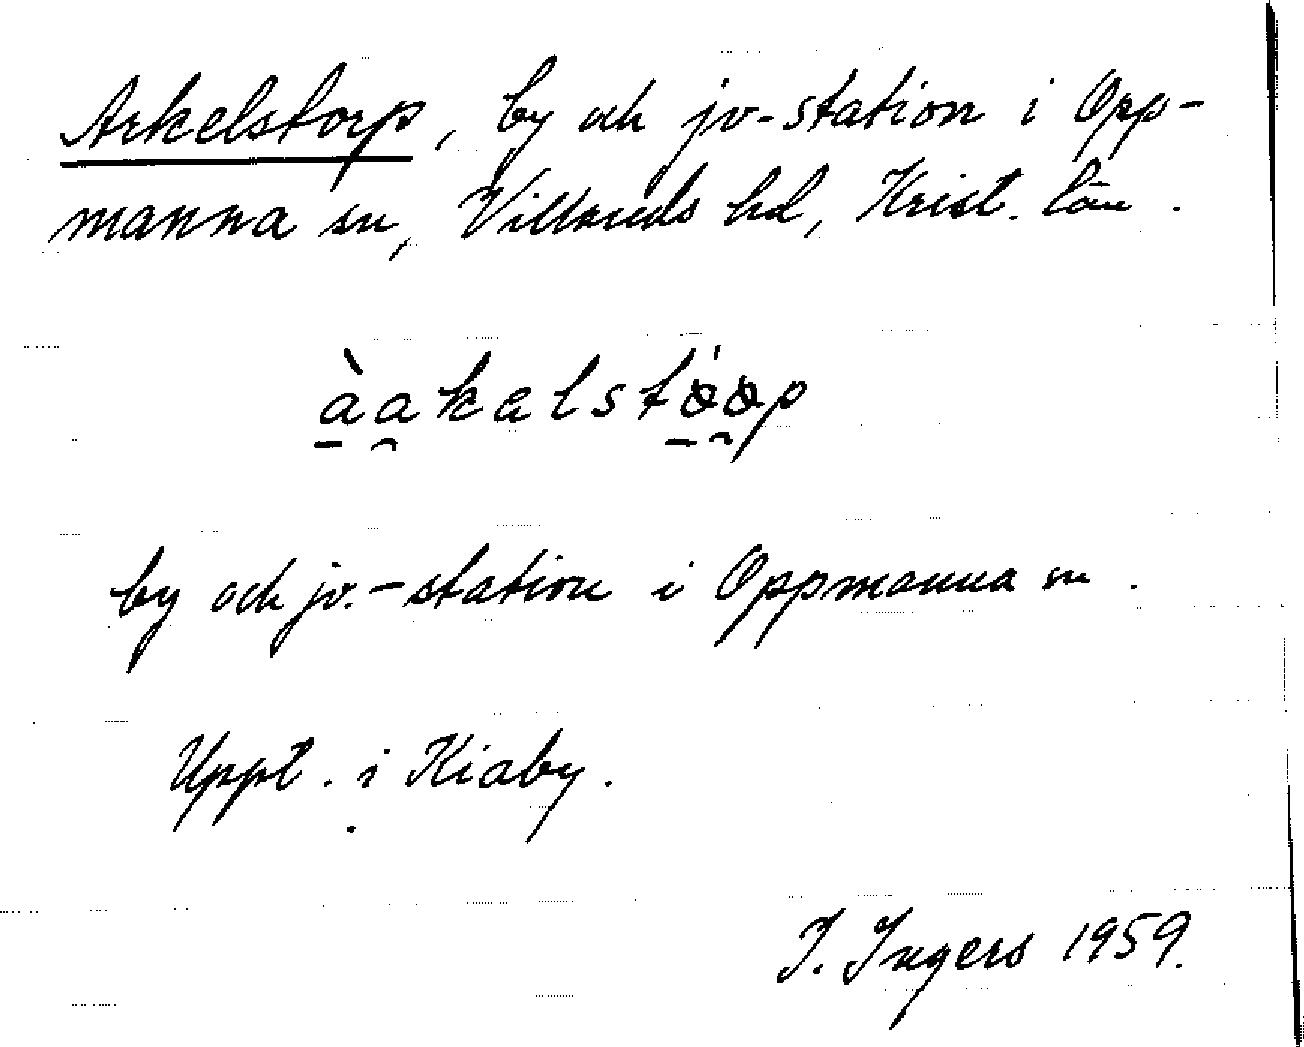 Arkelstorp, by och jv-station i Opp-
manna sn, Villands hd, Krist. län.
by och jv.-station i Oppmanna sn.
Uppt. i Kiaby.
I. Ingers 1959.